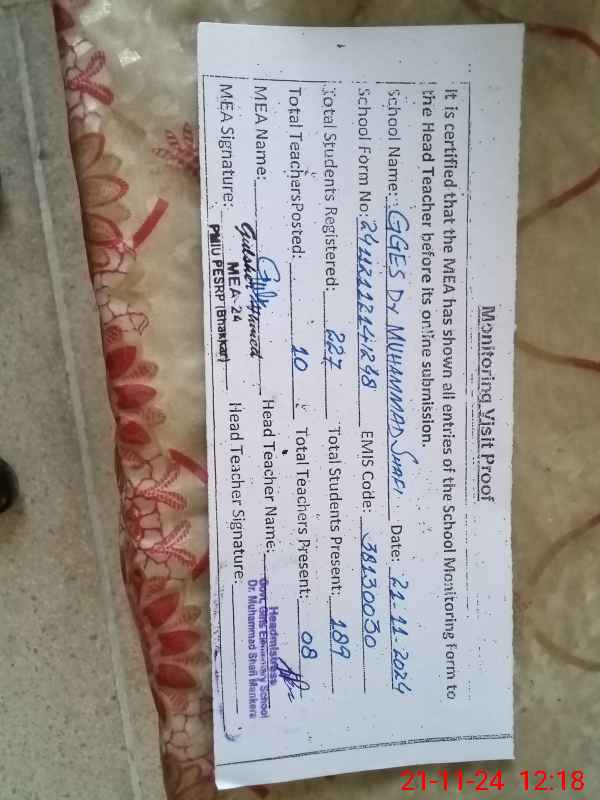 Monitoring Visit Proof
It is certified that the MEA has shown all entries of the School Monitoring Form to
the Head Teacher before its online submission.
School Name: GGES Dr MUHAMMAD SHAFI Date: 21-11-2024
School Form No: EMIS Code: 38130030
Total Students Registered: 227 Total Students Present: 189
Total TeachersPosted: 10 Total Teachers Present: 08
MEA Name: Head Teacher Name:
MEA Signature: Head Teacher Signature:
MEA-24
PMIU PESRP (Bhakkar)
Headmistress
Govt. Girls Elementary School
Dr. Muhammad Shafi Mankera
21-11-24 12:18